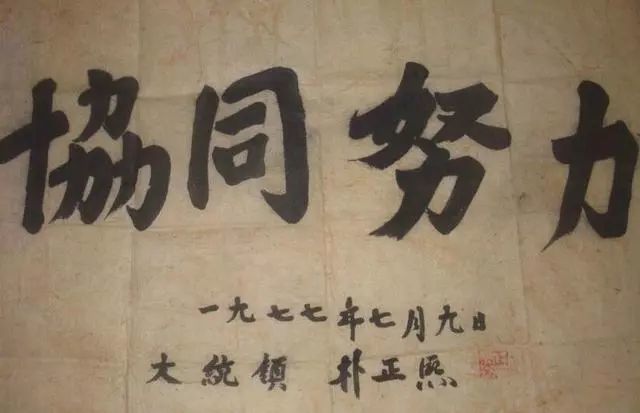 協同努力
一九七七年七月九日
大統領 朴正熙